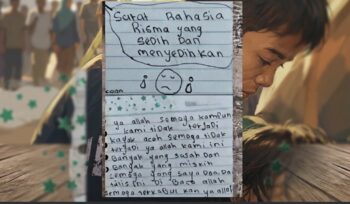 Surat Rahasia
Risma yang
sedih dan
menyedihkan
ya allah semoga kampun
kami tidak terjadi
kayak aceh semoga tidak
terjadi ya allah kami ini
Banyak yang susah dan
Banyak yang miskin
semoga yang saya dan da
tulis ini Di Baca allah
semoga terkabul kan ya allah